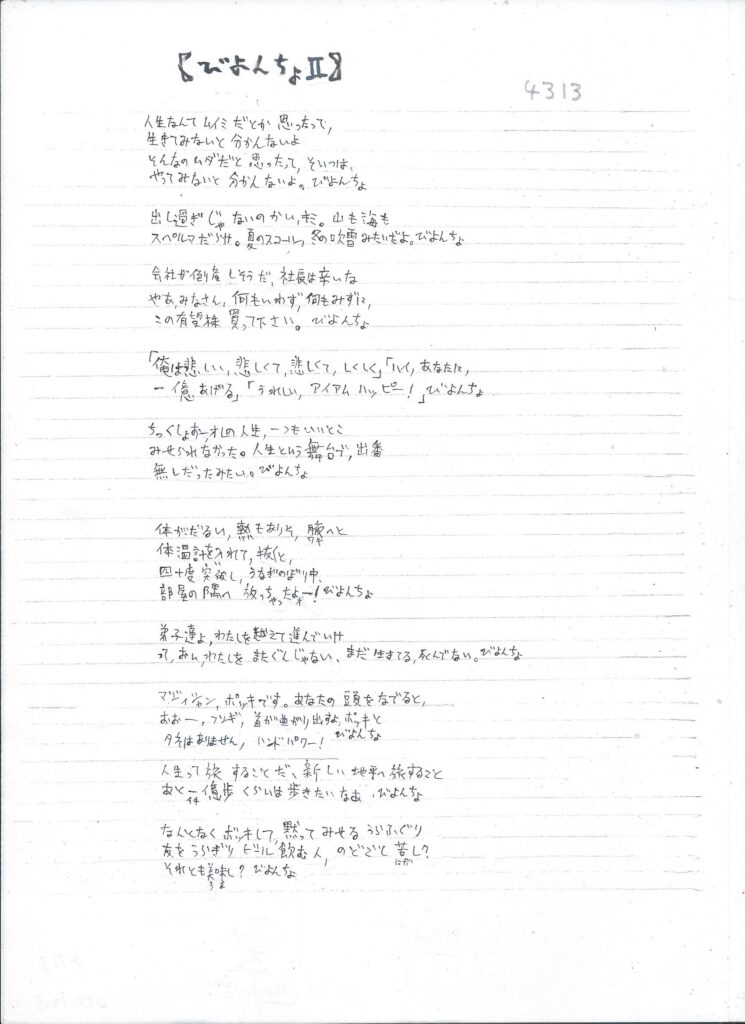 【びよんちょⅡ】
4313
人生なんてムイミだとか思ったって,
生きてみないと分かんないよ
そんなのムダだと思ったって,そいつは,
やってみないと分かんないよ。びよんちょ
出し過ぎじゃないのかい,キミ。山も海も
スペルマだらけ。夏のスコール,冬の吹雪みたいだよ。びよんちょ
会社が倒産しそうだ,社長は辛いな
やあ,みなさん,何もいわず,何もみずに,
この有望株買って下さい。びよんちょ
「俺は悲しい,悲しくて,悲しくて,しくしく」「ハイ,あなたに,
一億あげる」「うれしい,アイアムハッピー!」びよんちょ
ちっくしょおー,オレの人生,一つもいいとこ
みせられなかった。人生という舞台で,出番
無しだったみたい。びよんちょ
体がだるい,熱もありそ,腋へと
ワキ
体温計を入れて,抜くと,
四十度突破し,うなぎのぼり中,
部屋の隅へ放っちゃったよォー!びよんちょ
弟子達よ,わたしを越えて進んでいけ
って,おい,わたしをまたぐんじゃない、まだ生きてる,死んでない。びよんちょ
マジィシャン,ボッキです。あなたの頭をなでると,
おおー,フシギ,首が曲がり出すよ,ボッキと
タネはありません,ハンドパワー!びよんちょ
人生って旅することだ、新しい地平へ旅すること
あと一億歩くらいは歩きたいなあ,びよんちょ
イチ
なんとなくボッキして,黙ってみせるうらふぐり
友をうらぎりビール飲む人,のどごし苦し?
にが
それとも美味し?びよんちょ
うま